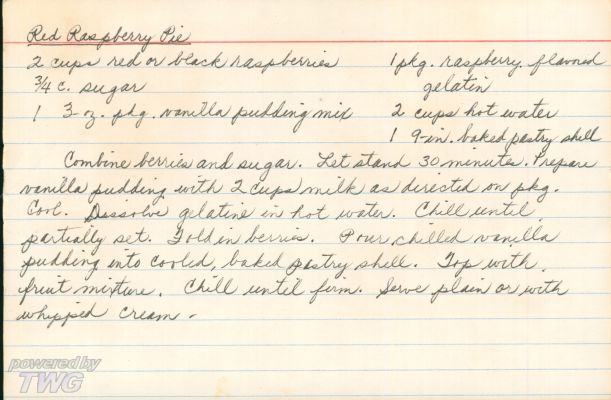 Red Raspberry Pie
2 cups red or black raspberries
1 pkg. raspberry flavored
gelatin
3/4 c. sugar
1 3-oz. pkg. vanilla pudding mix
2 cups hot water
1 9-in. baked pastry shell
Combine berries and sugar. Let stand 30 minutes. Prepare
vanilla pudding with 2 cups milk as directed on pkg.
Cool. Dissolve gelatine in hot water. Chill until
partially set. Fold in berries. Pour chilled vanilla
pudding into cooled, baked pastry shell. Top with
fruit mixture. Chill until firm. Serve plain or with
whipped cream.
powered by
TWG